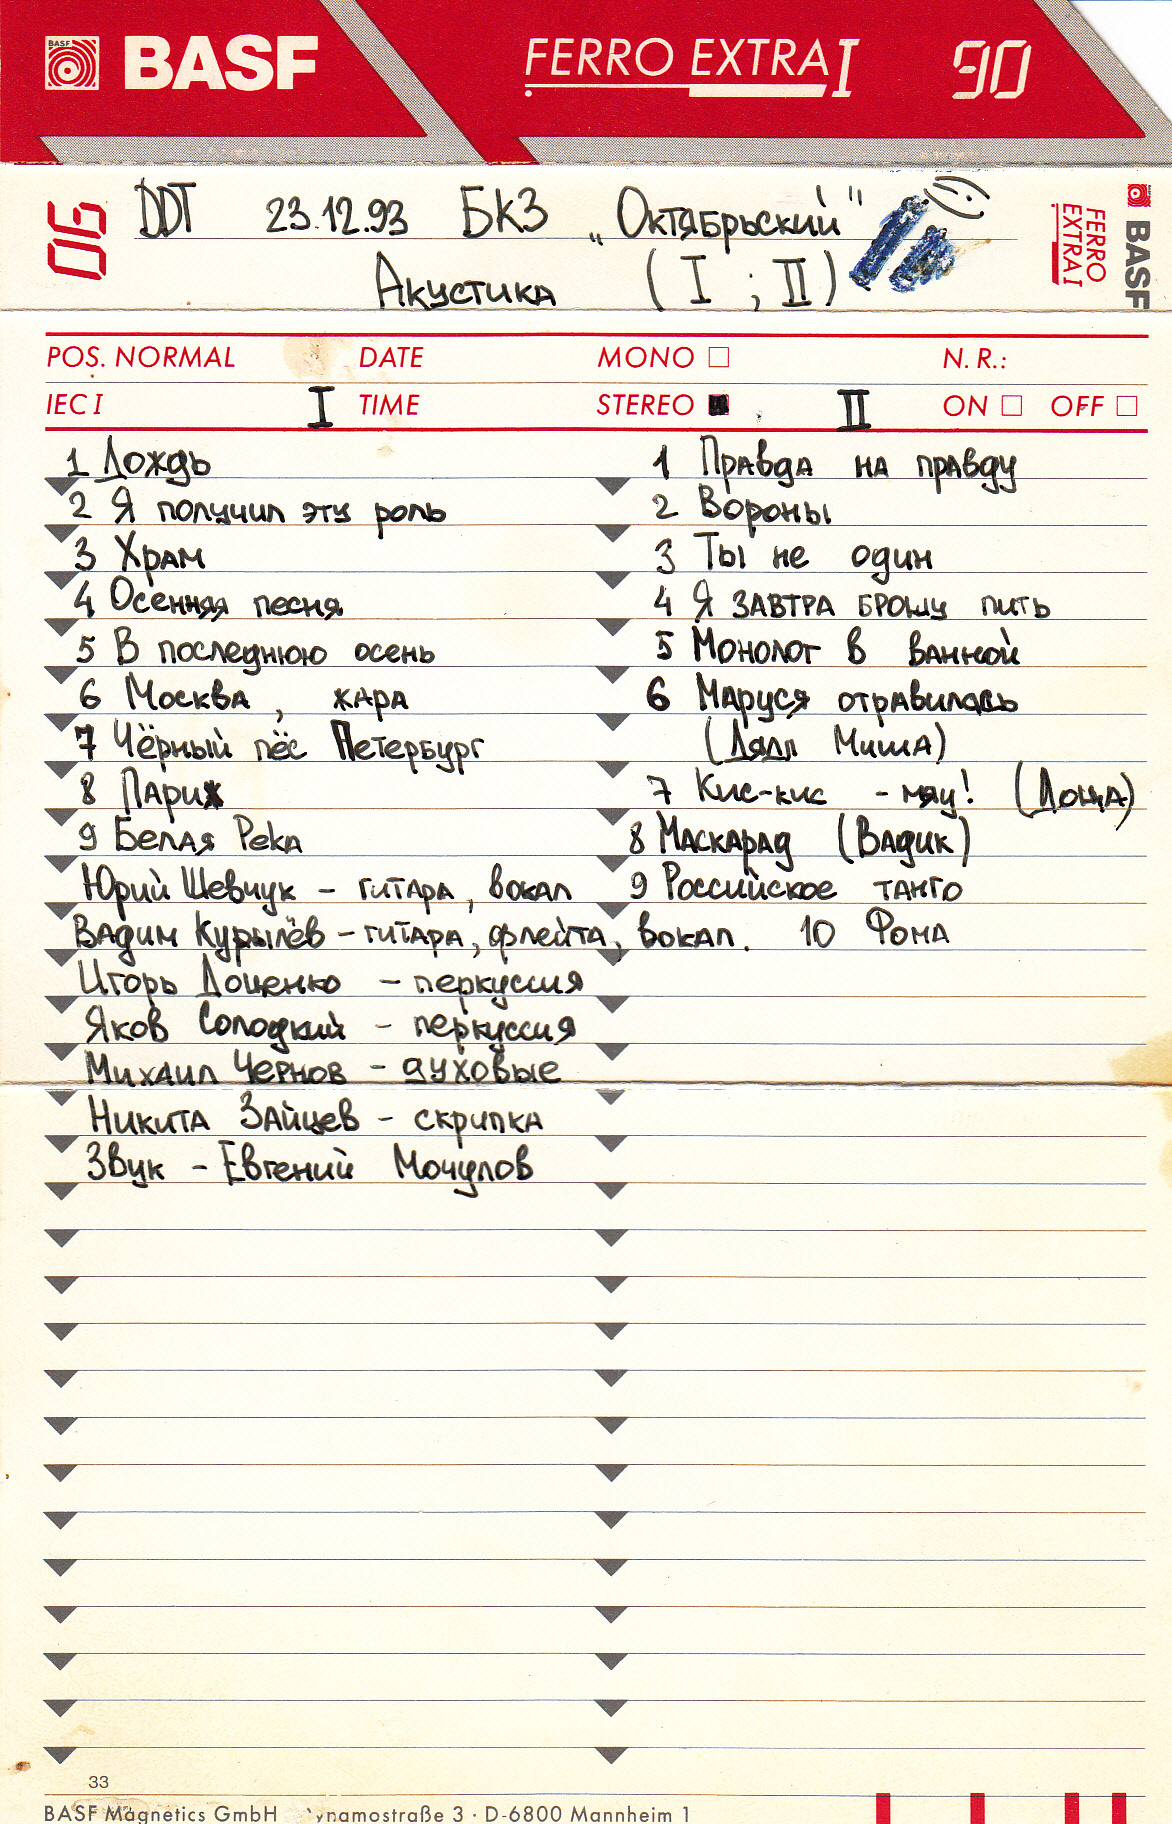 BASF BASF FERRO EXTRA I 90
90 DDT 23.12.93 БКЗ „Октябрьский"
Акустика (I ; II)
FERRO EXTRA I BASF
POS. NORMAL DATE MONO N.R.:
IEC I I TIME STEREO II ON OFF
1 Дождь
2 Я получил эту роль
3 Храм
4 Осенняя песня
5 В последнюю осень
6 Москва, жара
7 Чёрный пёс Петербург
8 Париж
9 Белая Река
Юрий Шевчук – гитара, вокал
Вадим Курылёв – гитара, флейта, вокал.
Игорь Доценко – перкуссия
Яков Солодкий – перкуссия
Михаил Чернов – духовые
Никита Зайцев – скрипка
Звук – Евгений Мочулов
1 Правда на правду
2 Вороны
3 Ты не один
4 Я завтра брошу пить
5 Монолог в ванной
6 Маруся отравилась
(Дядя Миша)
7 Кис-кис - мяу! (Доца)
8 Маскарад (Вадик)
9 Российское танго
10 Фома
33
BASF Magnetics GmbH ynamostraße 3 · D-6800 Mannheim 1